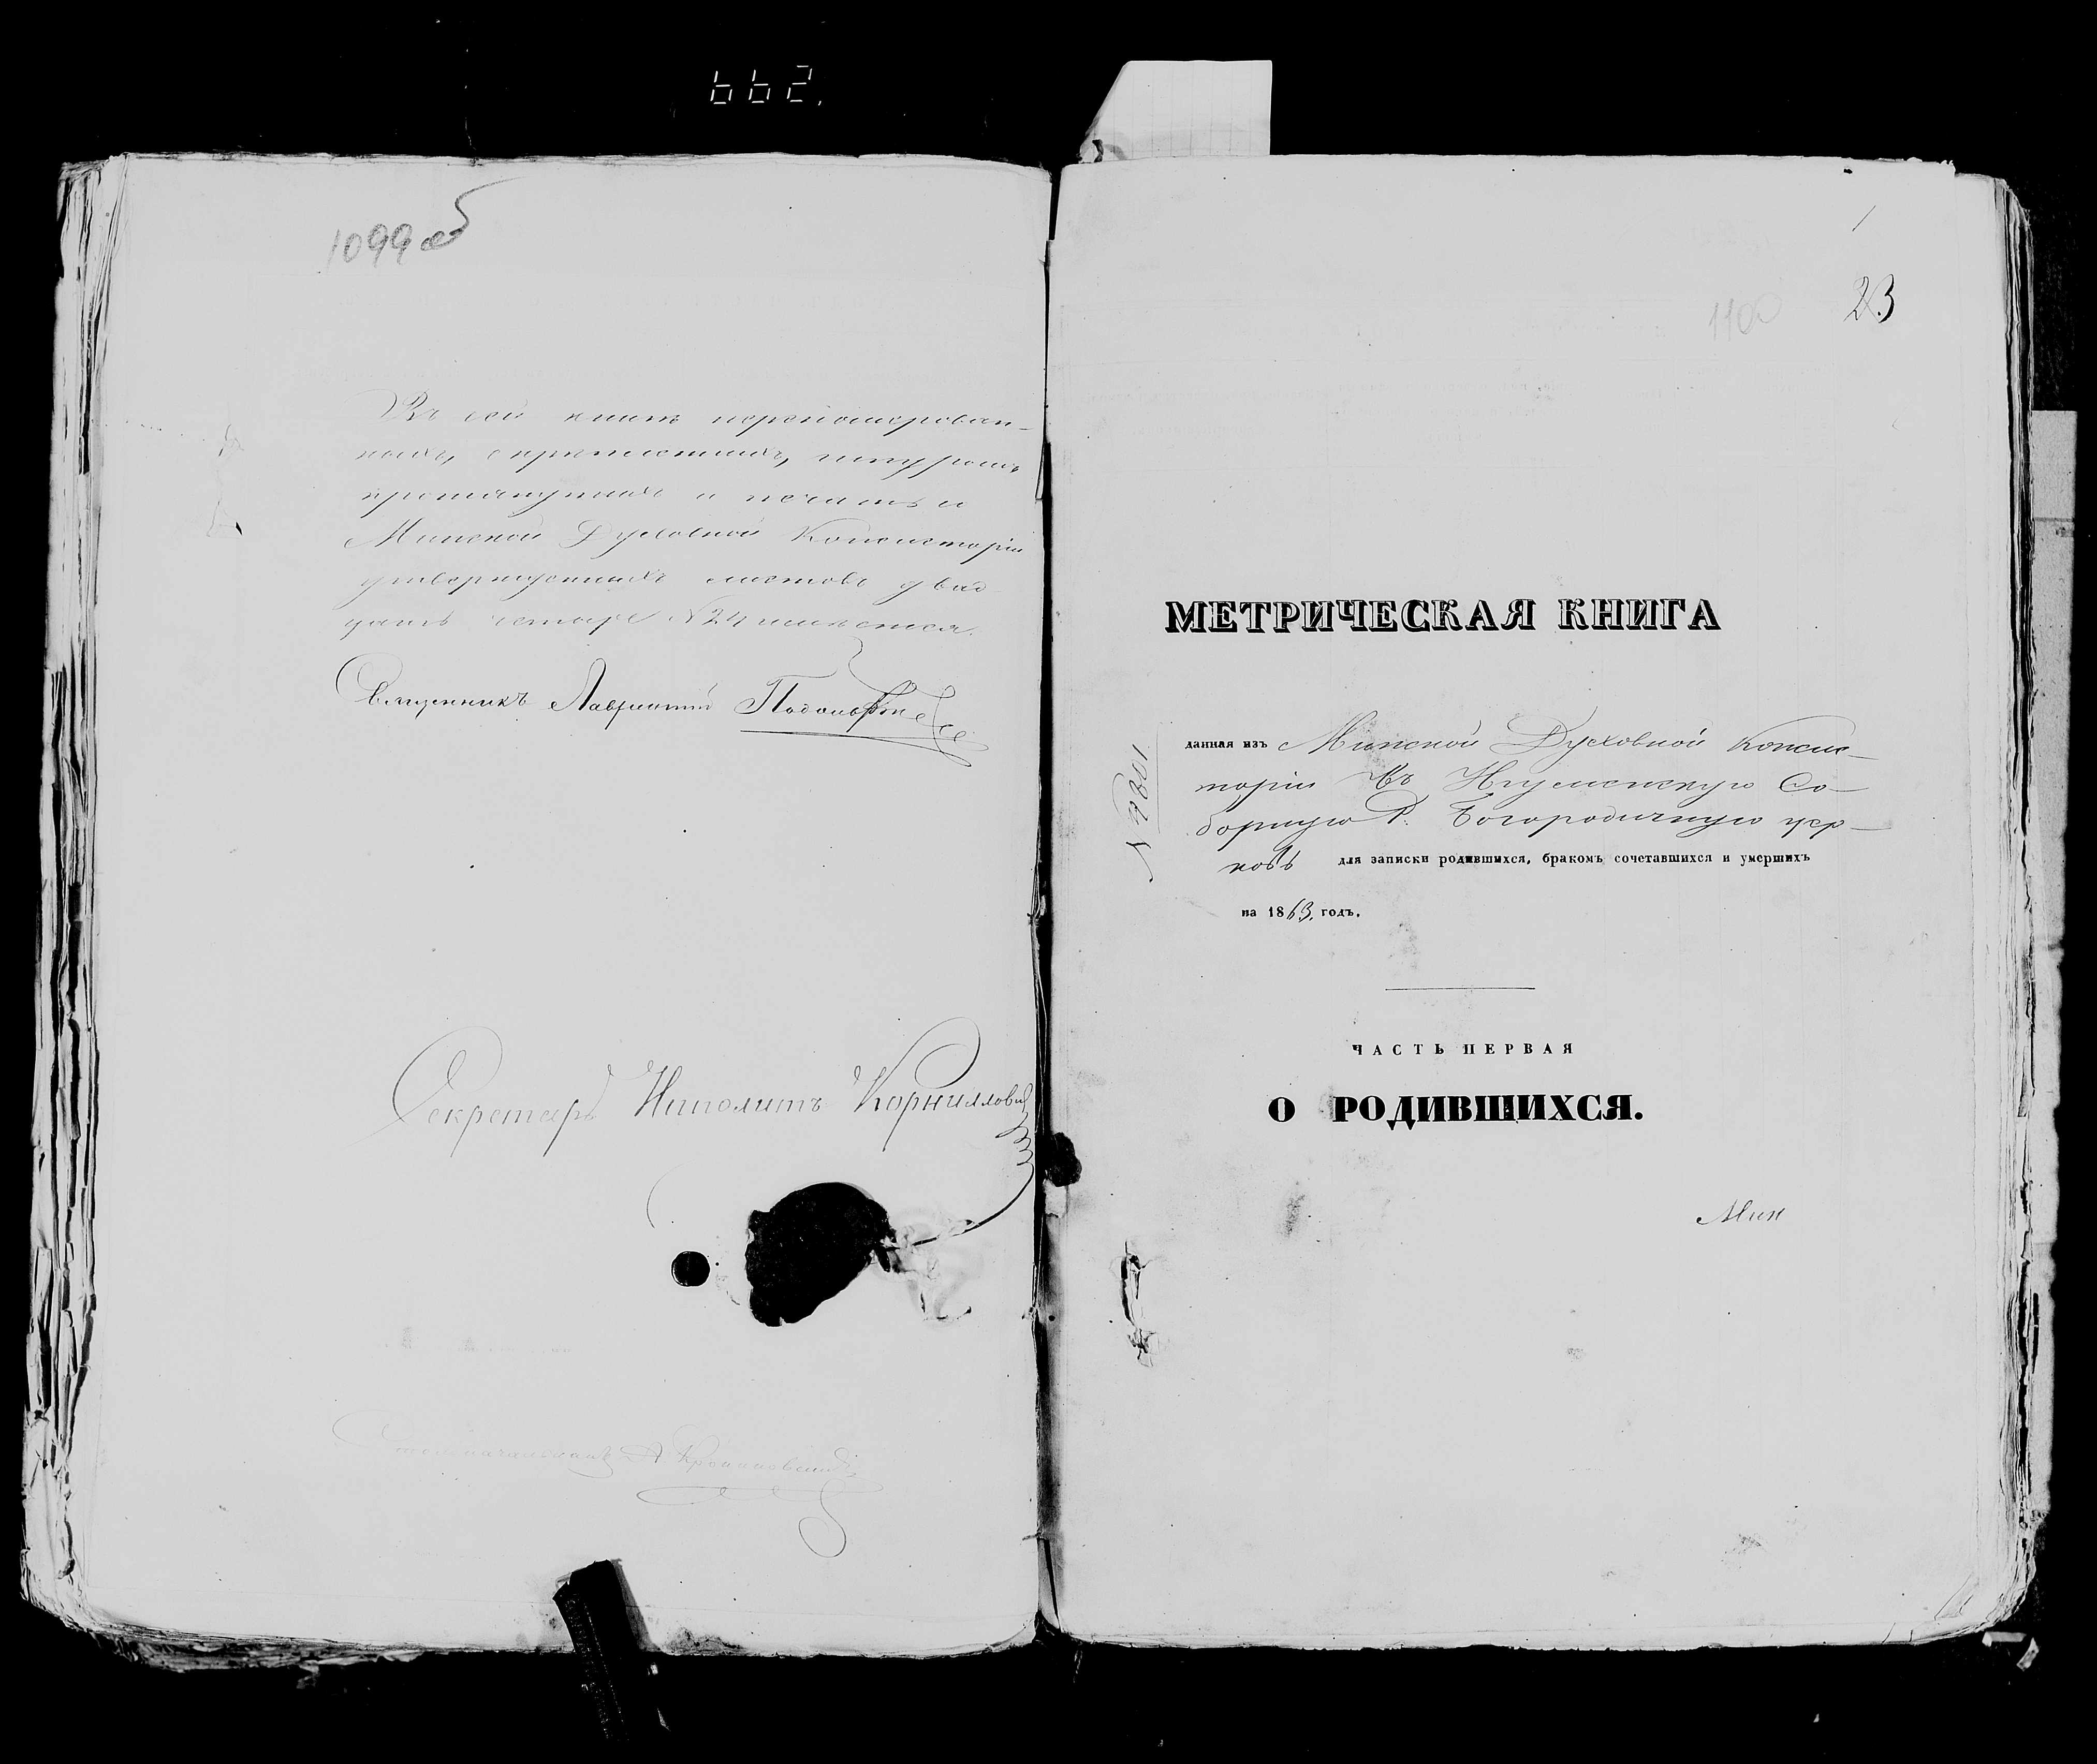 662.
1099 об
Въ сей книгѣ переномерован-
ныхъ, скрепленныхъ, шнуромъ
протянутыхъ и печатью
Минской Духовной Консисторіи
утвержденныхъ листовъ двад
цать четыре №24 имѣется.
Священникъ Лаврентій
Секретарь Ипполитъ Корниллович
Столоначальникъ
1
23
1100
МЕТРИЧЕСКАЯ КНИГА
данная изъ Минской Духовной Консис-
торіи Въ Игуменскую Со-
борную Р. Богородичную цер-
ковь для записки родившихся, бракомъ сочетавшихся и умершихъ
на 1863. годъ.
ЧАСТЬ ПЕРВАЯ
О РОДИВШИХСЯ.
Мин